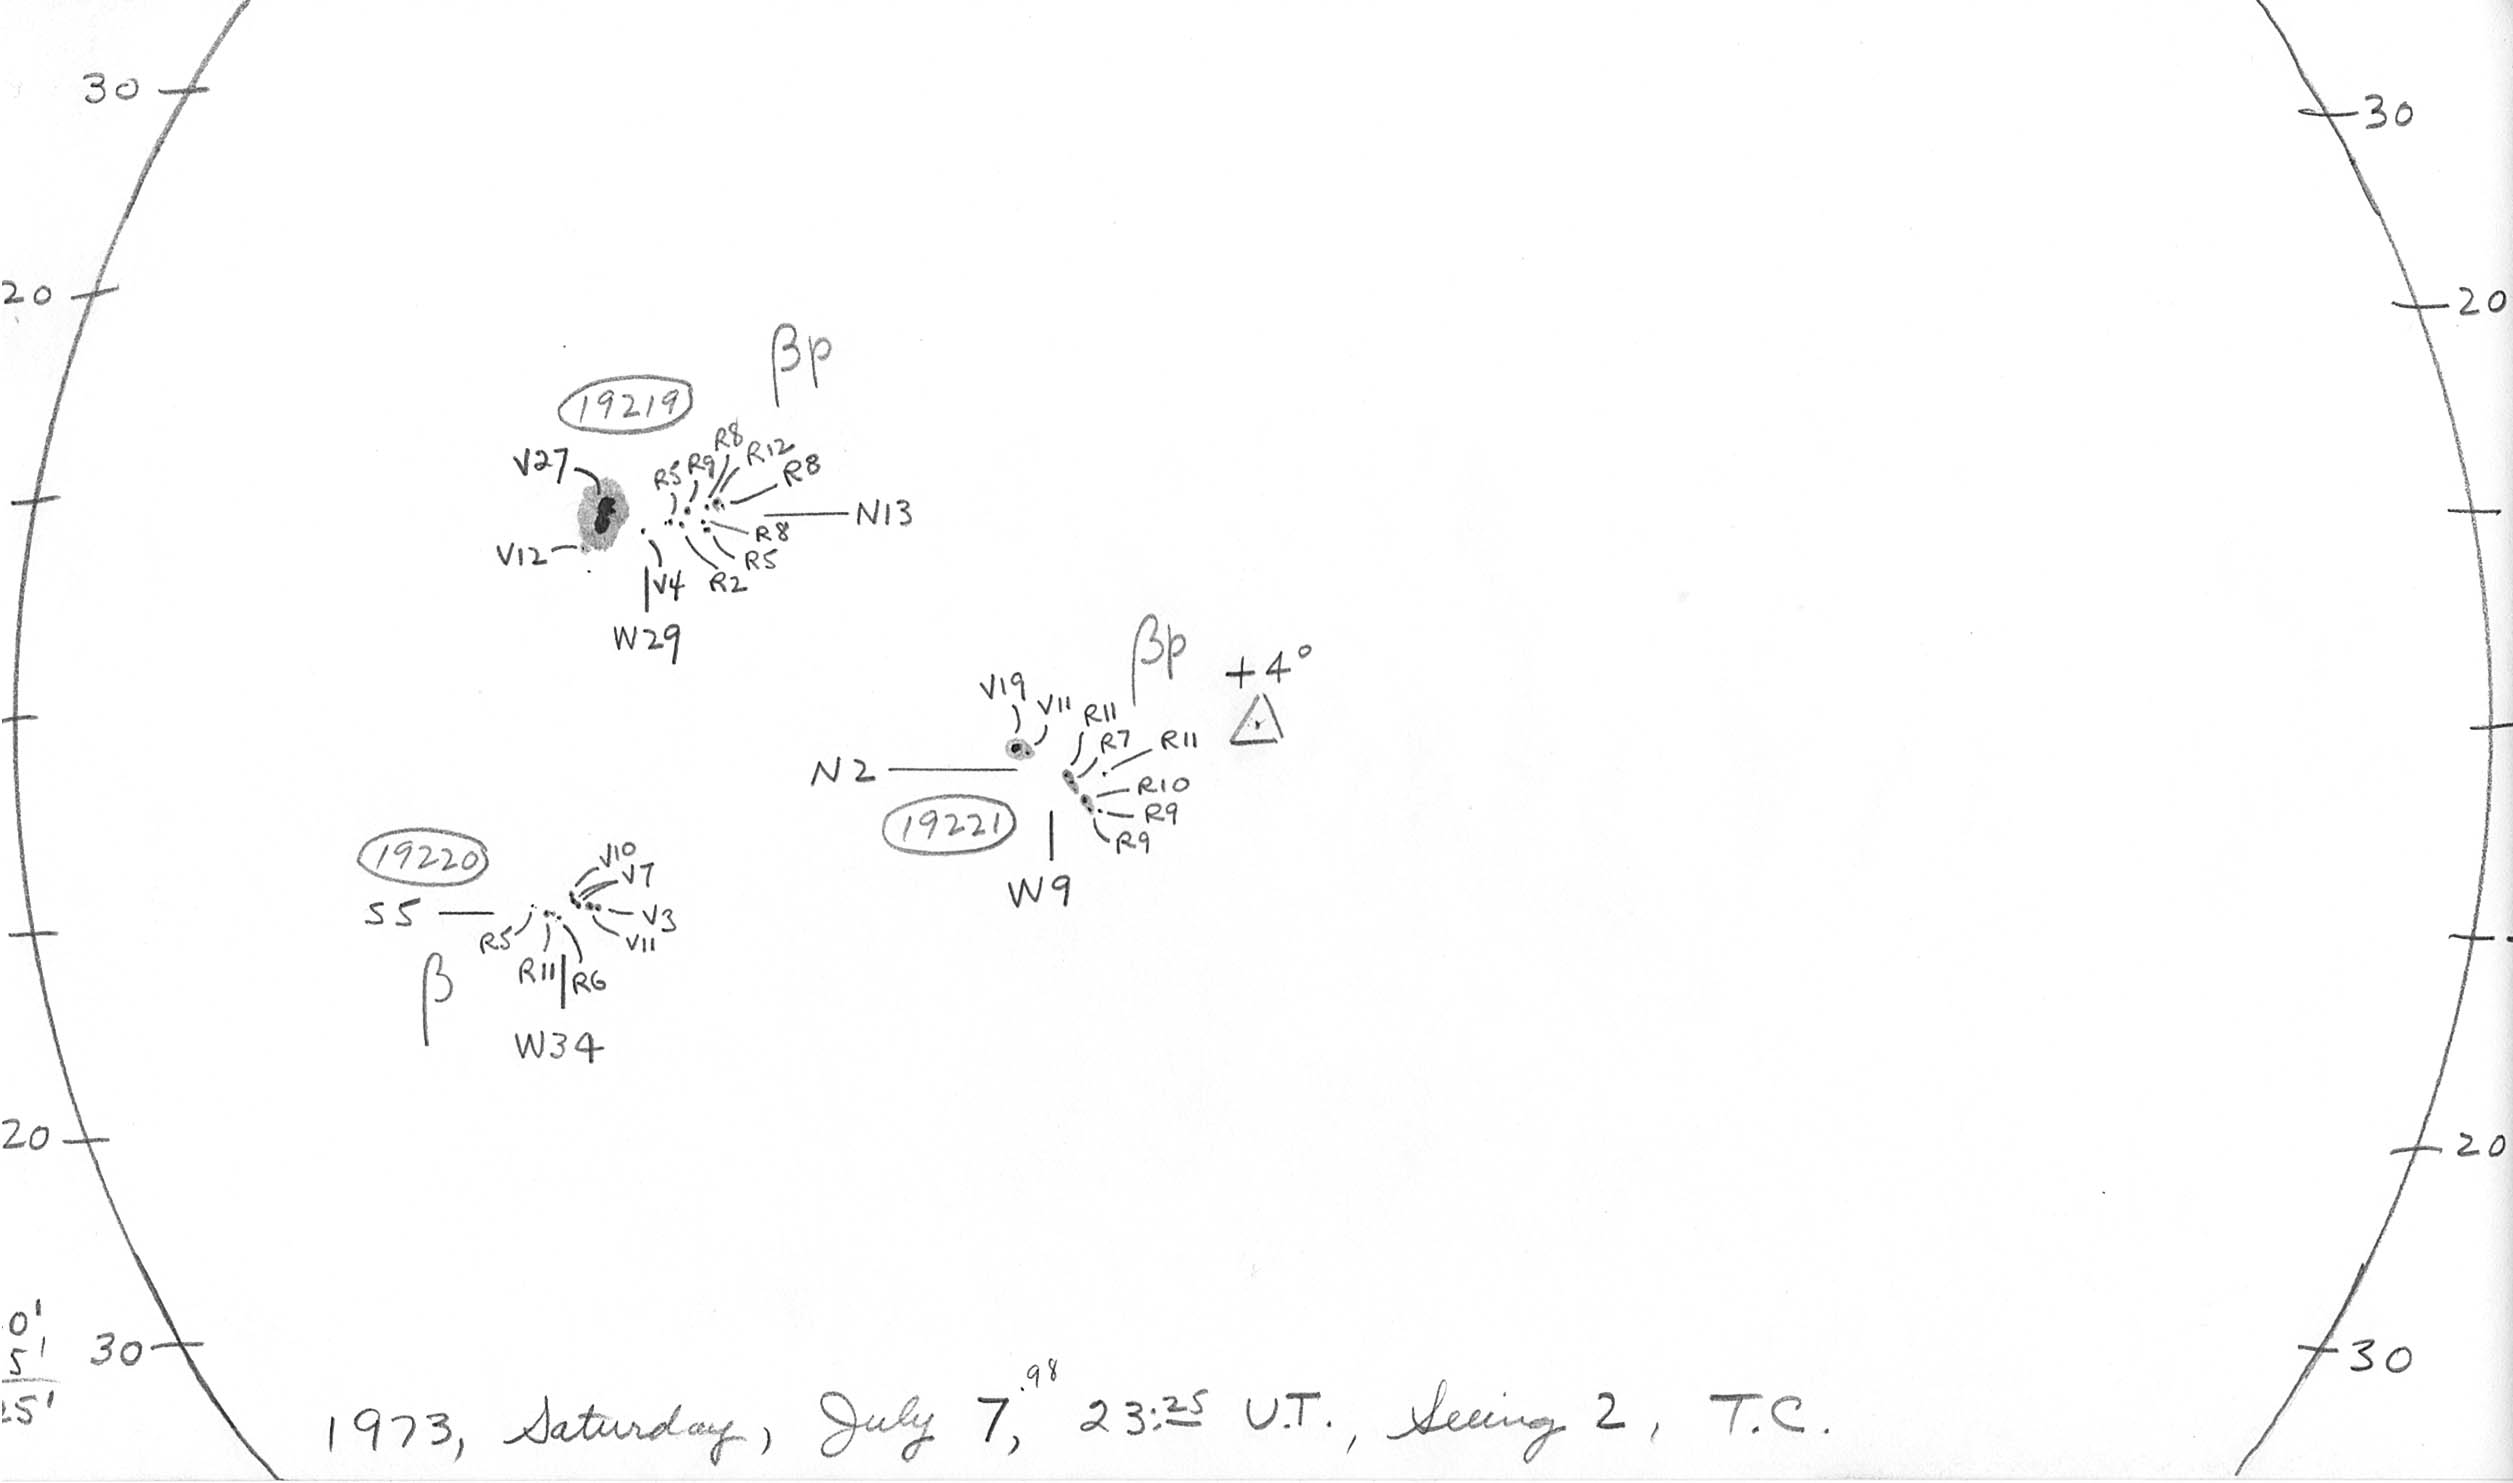 30
30
20
20
βp
19219
R8
V27
R5 R9 R12
R8
N13
V12
R8
R5
V4
R2
W29
βp
+4°
V19
V11
R11
R7
R11
N2
R10
R9
19221
R9
W9
19220
V10
V7
S5
V3
R5
V11
R11
R6
β
W34
20
20
0'
5'
30
30
5'
1973, Saturday, July 7,.98 23:25 U.T., Seeing 2, T.C.